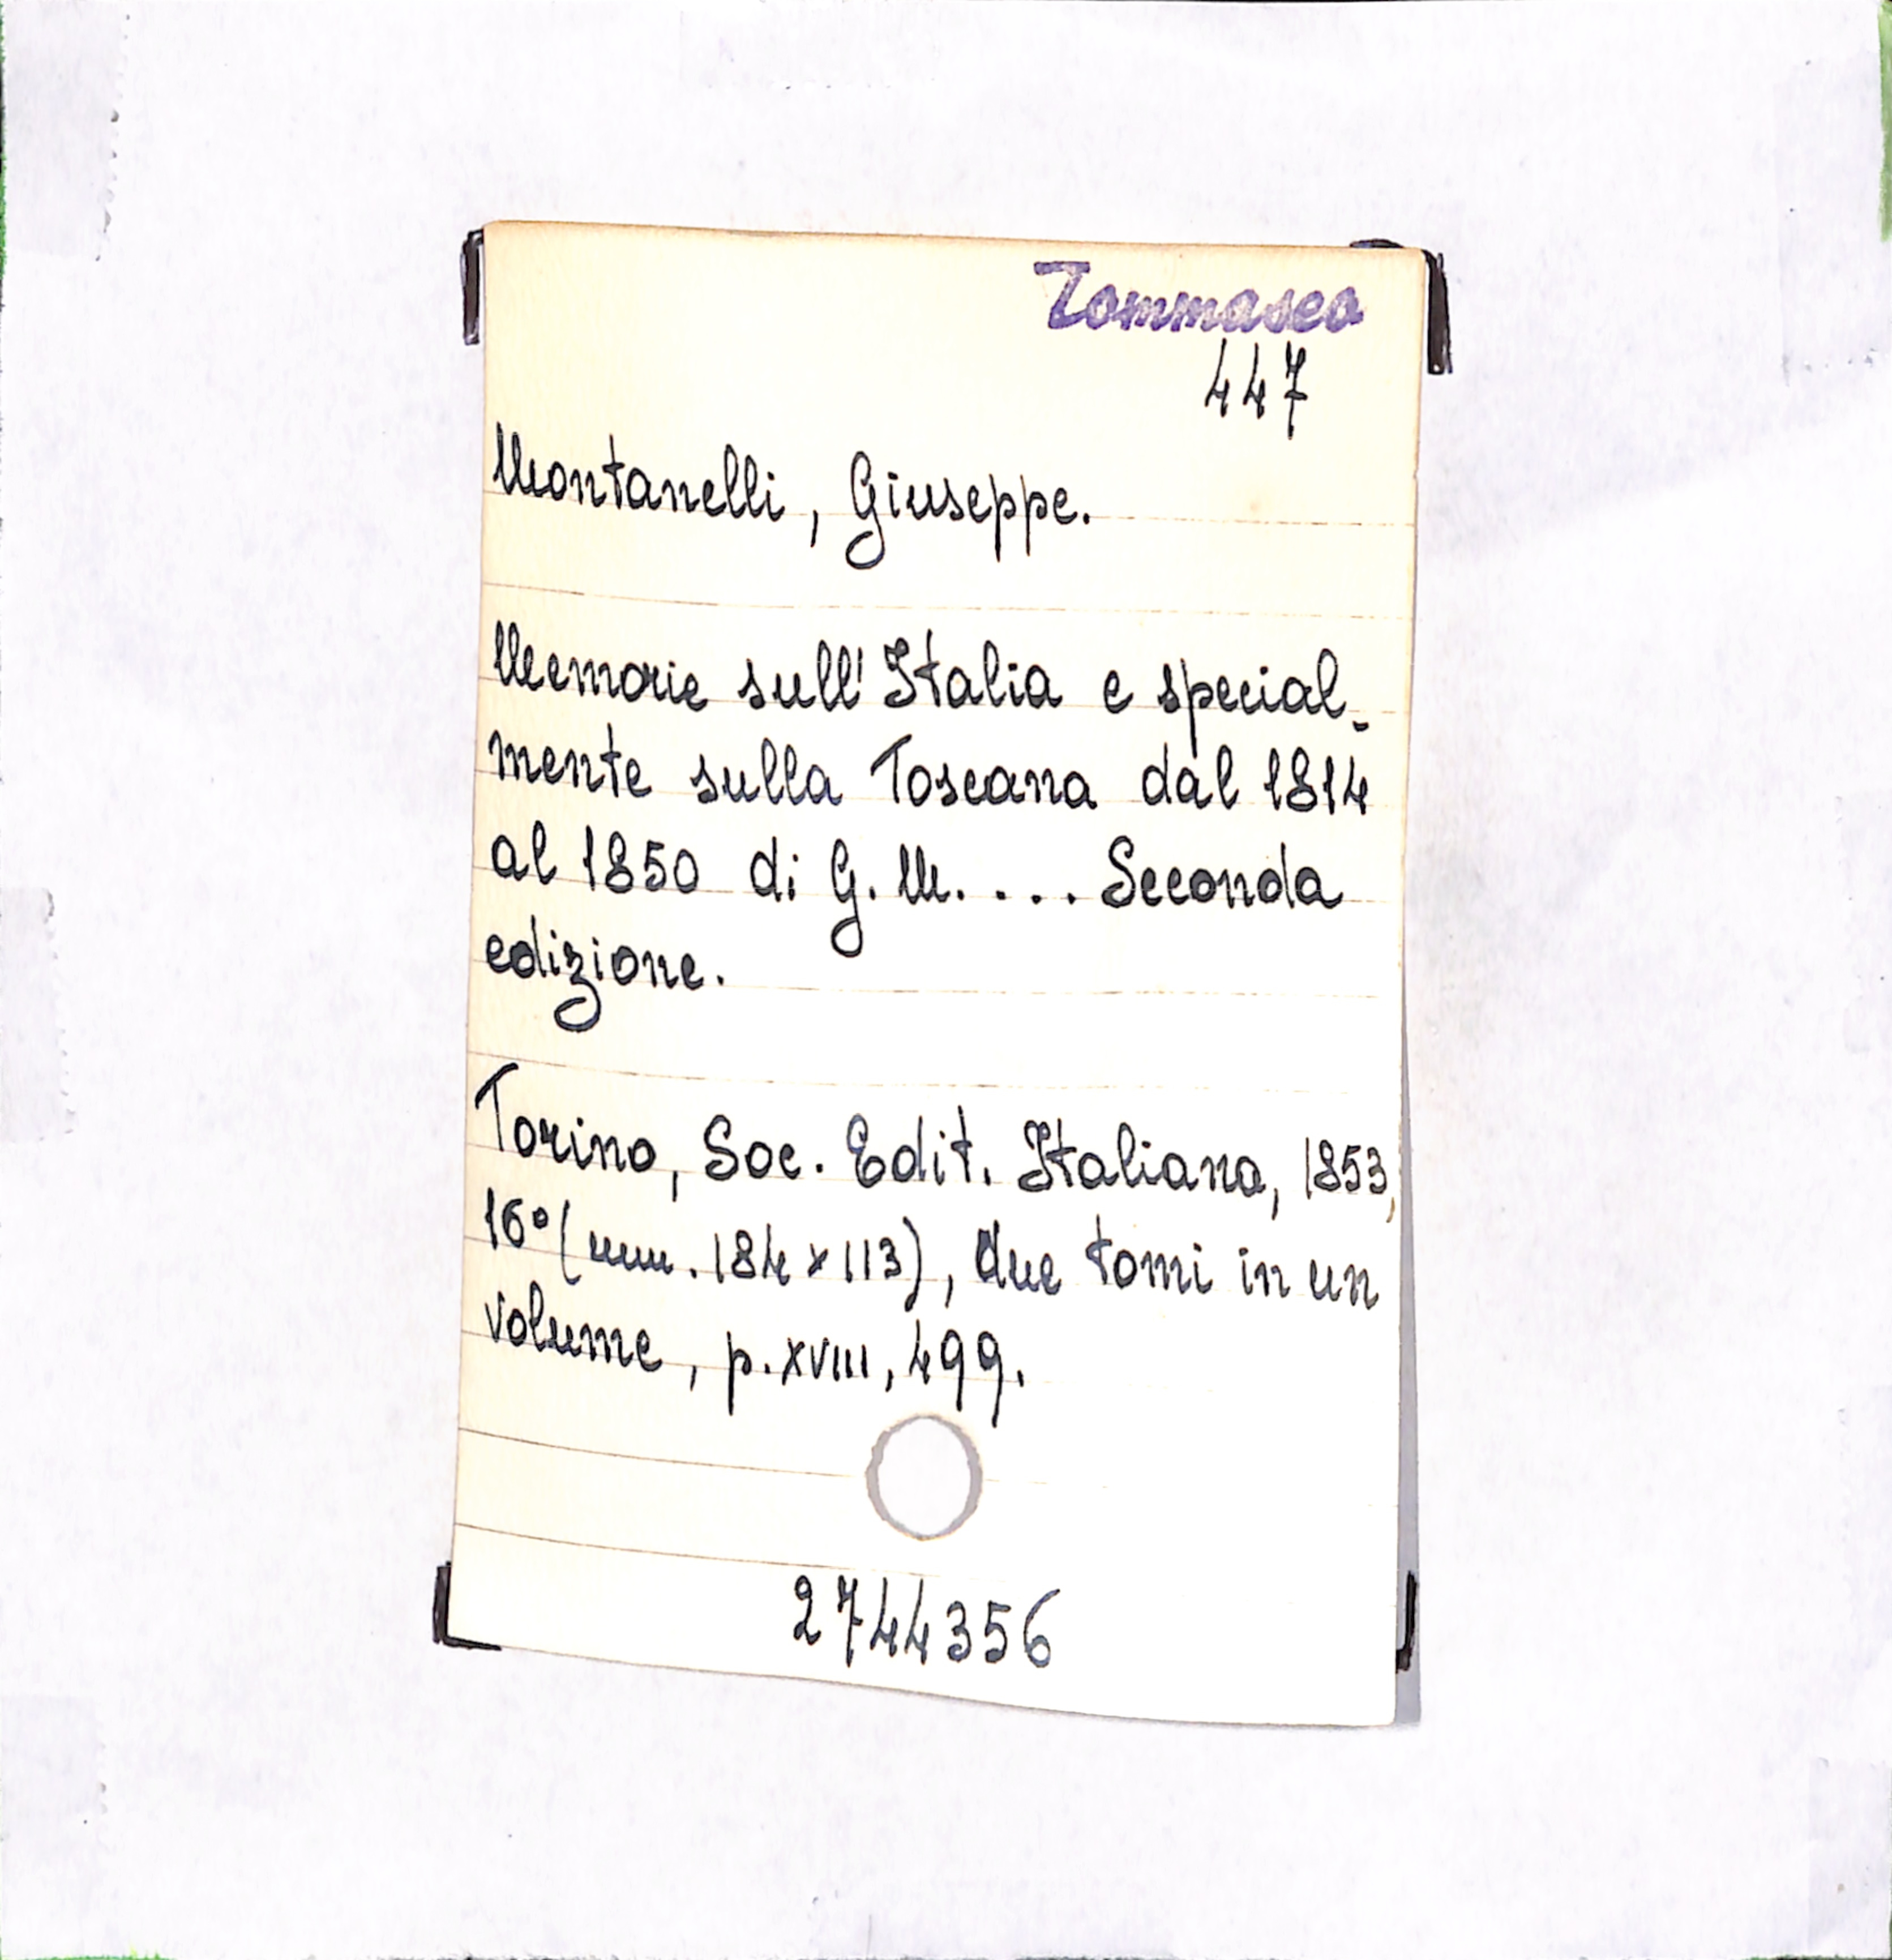 Tommaseo
447
Montanelli, Giuseppe.
Memorie sull'Italia e special-
mente sulla Toscana dal 1814
al 1850 di G. M. ... Seconda
edizione.
Torino, Soc. Edit. Italiana, 1853,
16° (mm. 184 x 113), due tomi in un
volume, p. XVIII, 499.
2744356